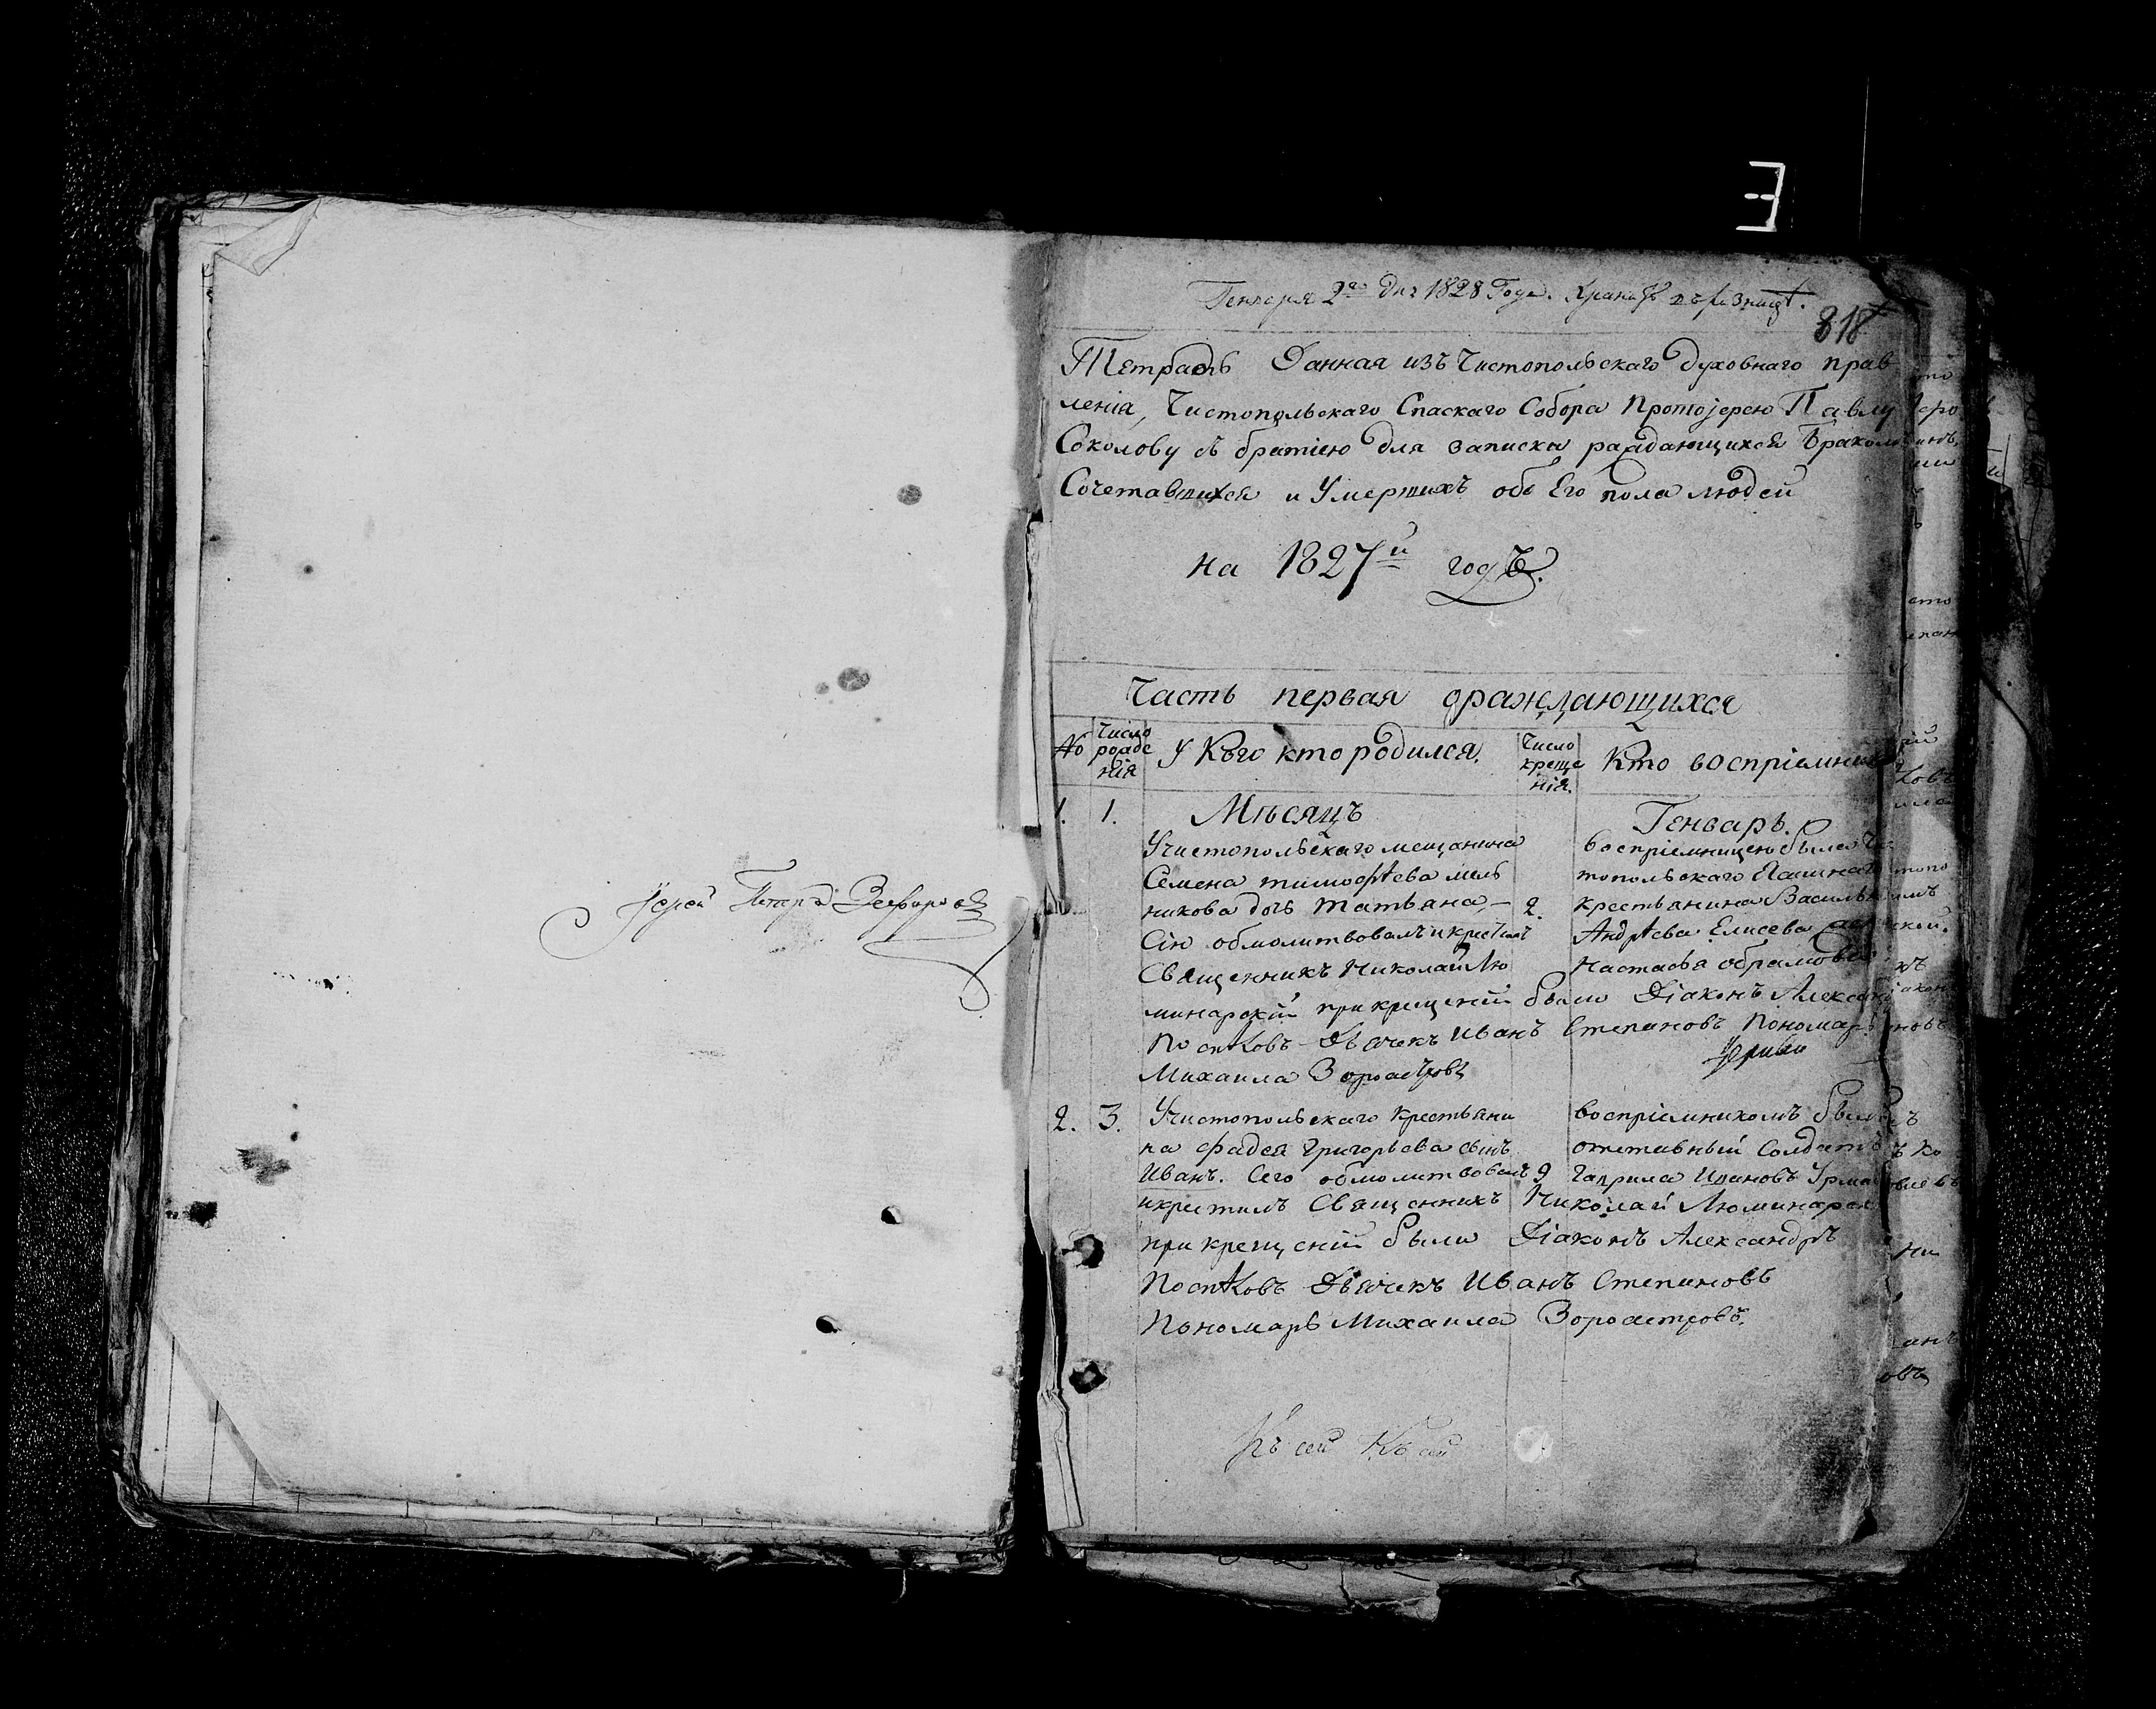 Іерей Петръ Зефировъ
Генваря 2го дня 1828 Года.
818
Тетрадь Данная изъ Чистопольскаго духовнаго прав
ленія, Чистопольскаго Спаскаго Собора Протоіерею Павлу
Соколову съ братіею для записки раждающихся Бракомъ
Сочетавшихся и Умершихъ обоЕго пола людей
на 1827й годъ.
Часть первая ораждающихся
№ Число рожде нія У Кого кто родился. Число креще нія. Кто воспріемники
1. 1. Мѣсяцъ Генварь.
Учистопольскаго мещанина
Семена тимофѣева мель
никова дочь татьяна,— 2.
Сію обмолитвовалъ икрестилъ
Священникъ Николай Лю
минарскій прикрещеній были Діаконъ Александръ
Поспѣловъ Дьячекъ Иванъ Степановъ Пономарь
Михаила Зороастровъ
воспріемницею была Чис
топольскаго
крестьянина Василья
Андрѣева Елисева
Настасья обрамова
2. 3. Учистопольскаго крестьяни
на Фадея Григорьева сынъ
Иванъ. Сего обмолитвовалъ 9
икрестилъ Священникъ Николай Люминарскій
прикрещеній были Діаконъ Александръ
Поспѣловъ Дьячекъ Иванъ Степановъ
Пономарь Михаила Зороастровъ.
воспріемникомъ былъ
отставный Солдатъ
Гаврила Ивановъ
Къ сей Къ сей